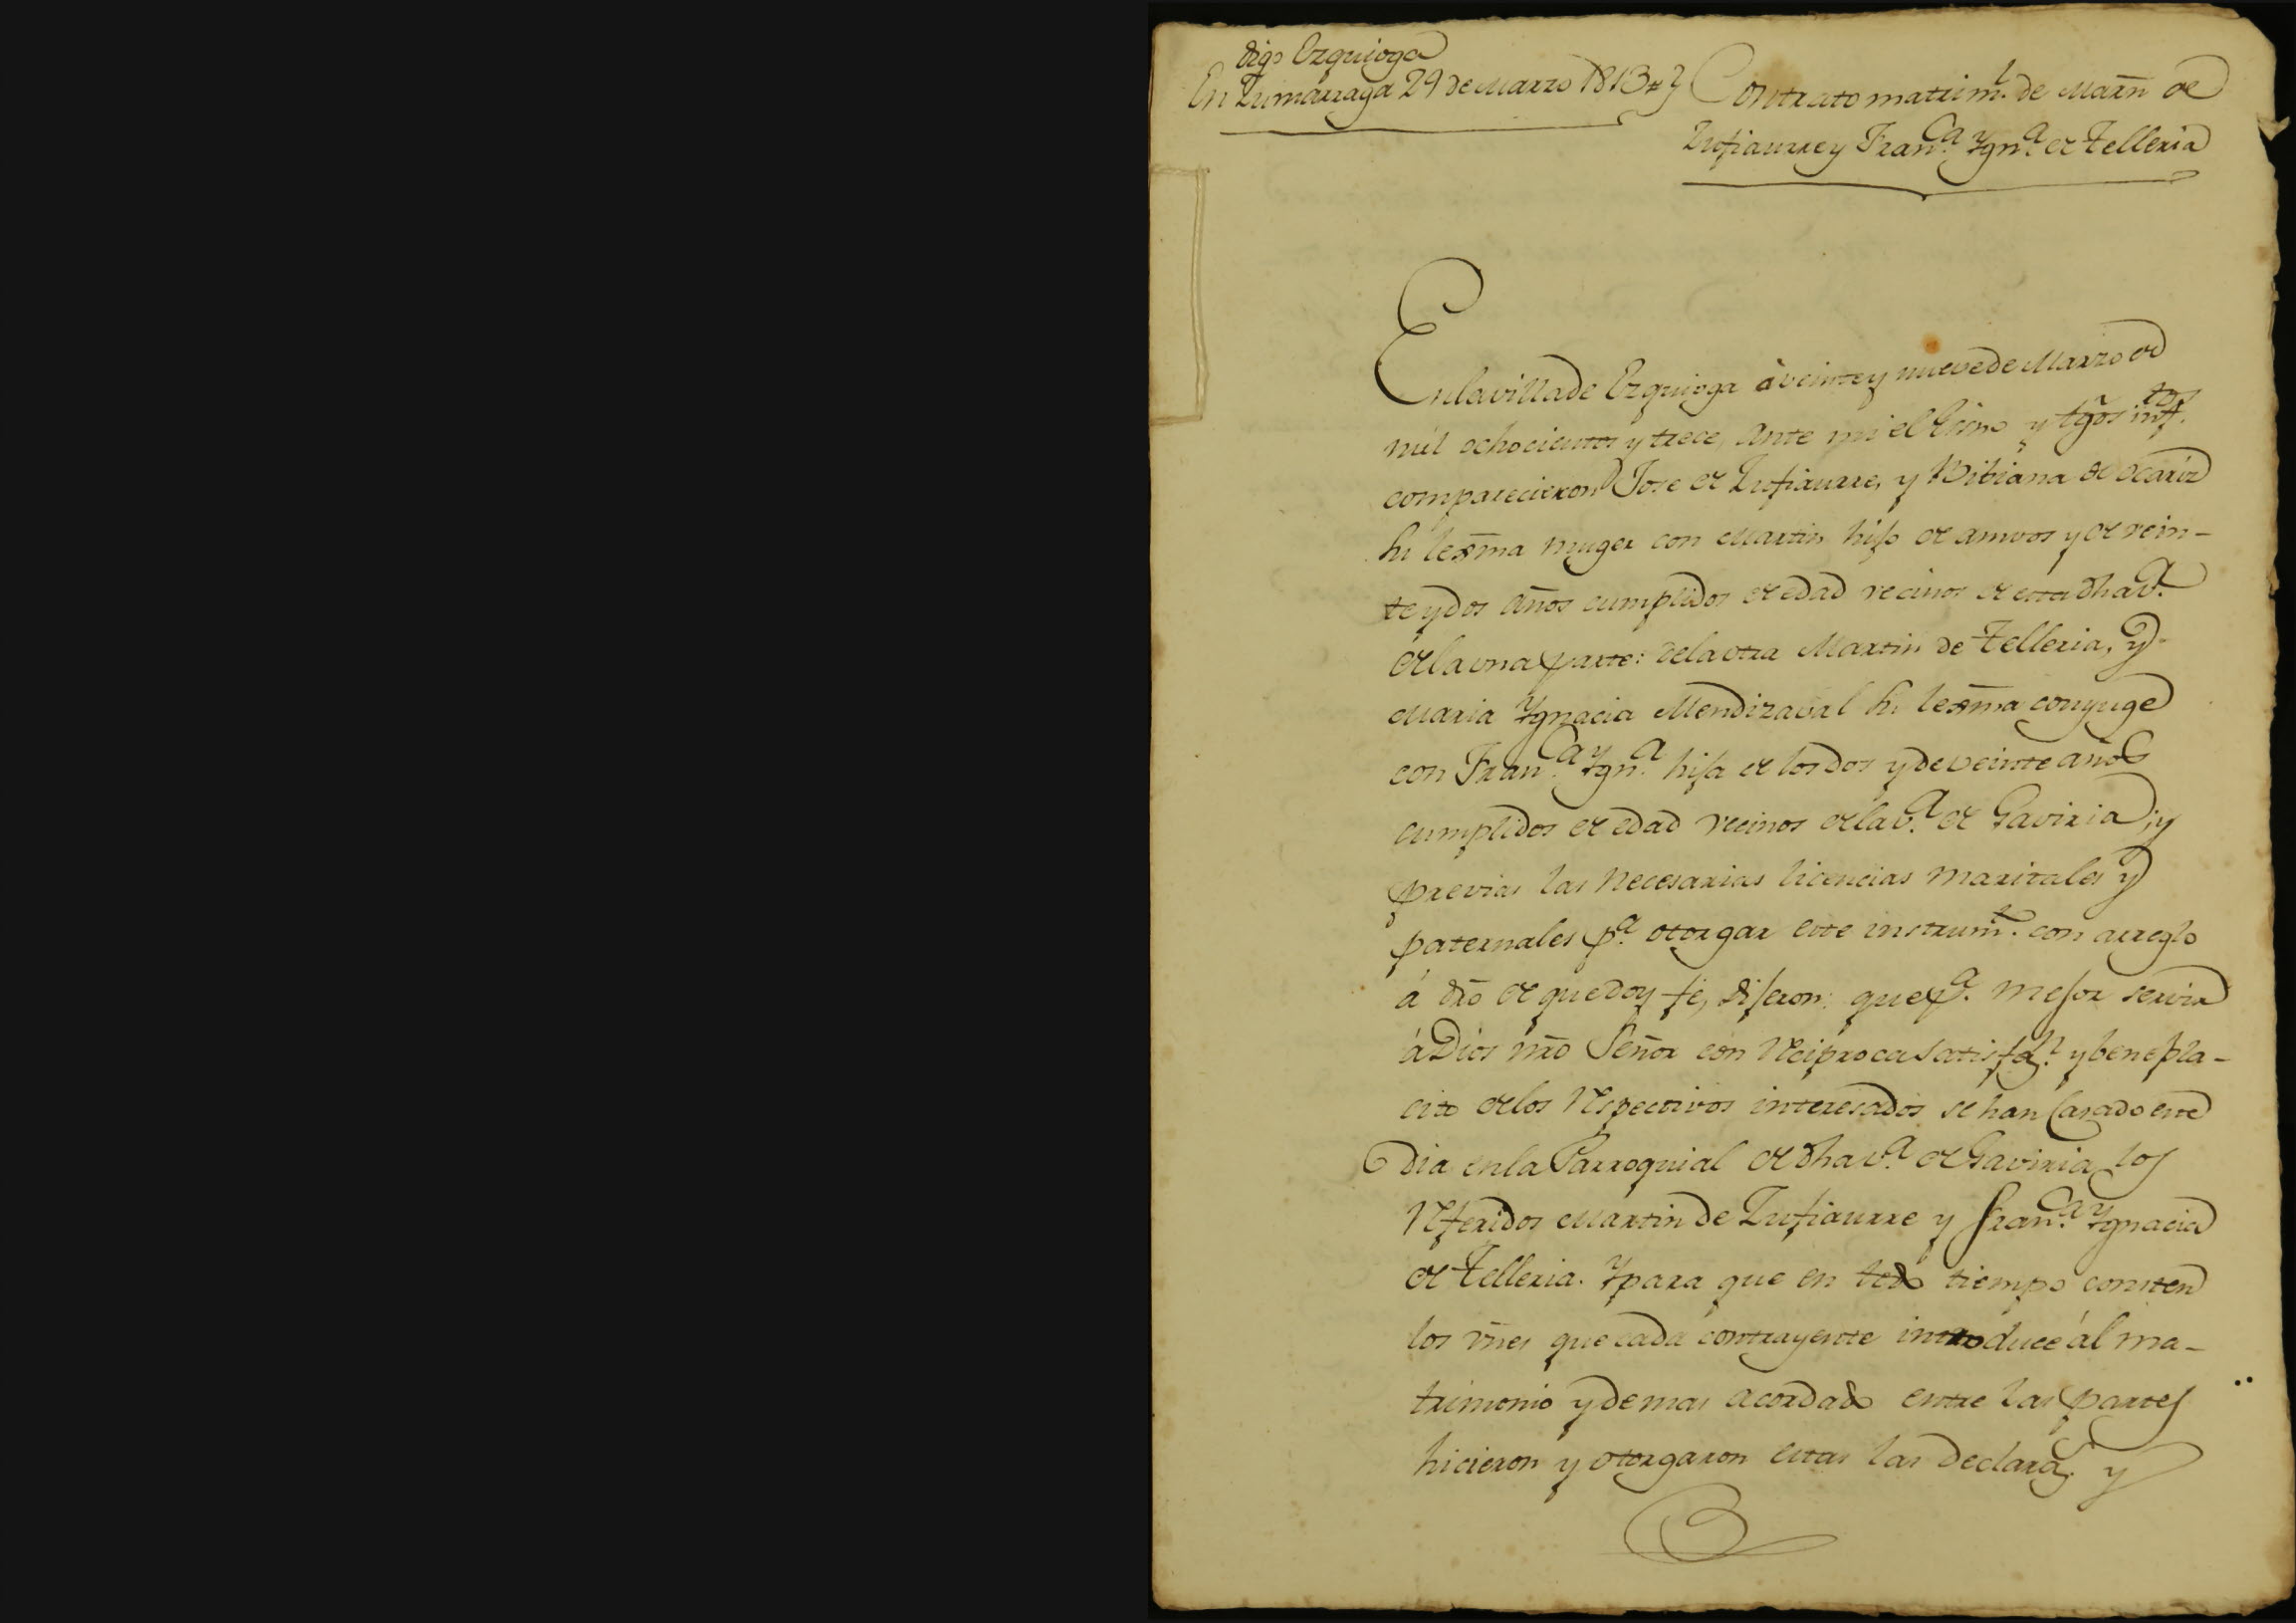 digo Ezquioga
En Zumarraga 29 de Marzo 1813 =} Contrato matrim.l de Marñ de
Zufiaurre y Fran.ca Ygn.a de Telleria
En la villa de Ezquioga à veinte y nueve de Marzo de
mil ochocientos y trece, ante mi el Esno y tg̃os inf.tos
comparecieron Jose de Zufiaurre, y Bibiana de Ocariz
su lexm̃a muger con Martin hijo de amvos y de vein-
te y dos años cumplidos de edad vecinos de esta dha v.a
de la una parte: de la otra Martin de Telleria, y
Maria Ygnacia Mendizaval su lexm̃a conyuge
con Fran.ca Ygn.a hija de los dos y de veinte años
cumplidos de edad vecinos de la v.a de Gaviria; y
previas las necesarias licencias maritales y
paternales p.a otorgar este instrum.t con arreglo
á dr̃o de que doy fé, dijeron: que p.a mejor servir
á Dios nr̃o Señor con reciproca satisfaj.n y benepla-
cito de los respectivos interesados se han casado este
dia en la Parroquial de dha v.a de Gaviria los
referidos Martin de Zufiaurre y Fran.ca Ygnacia
de Telleria. Y para que en todo tiempo consten
los vñes que cada contrayente introduce ál ma-
trimonio y demas acordado entre las partes
hicieron y otorgaron estas las declarac.s y